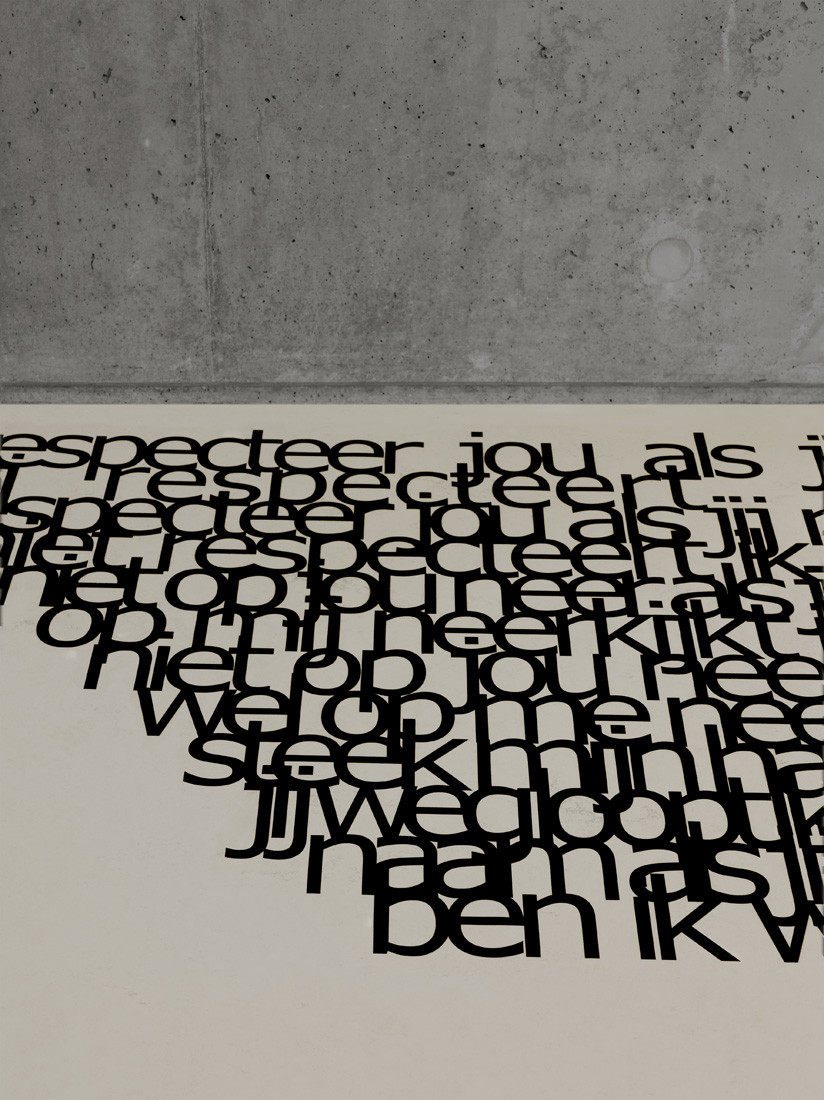 especteer jou als j
respecteert jij
specteer jou als jij
niet respecteert ik
niet op jou neer als
op mij neerkijkt
niet op jou nee
wel op me nee
steek mijn ha
jij wegloopt ik
naam als jij
ben ik w